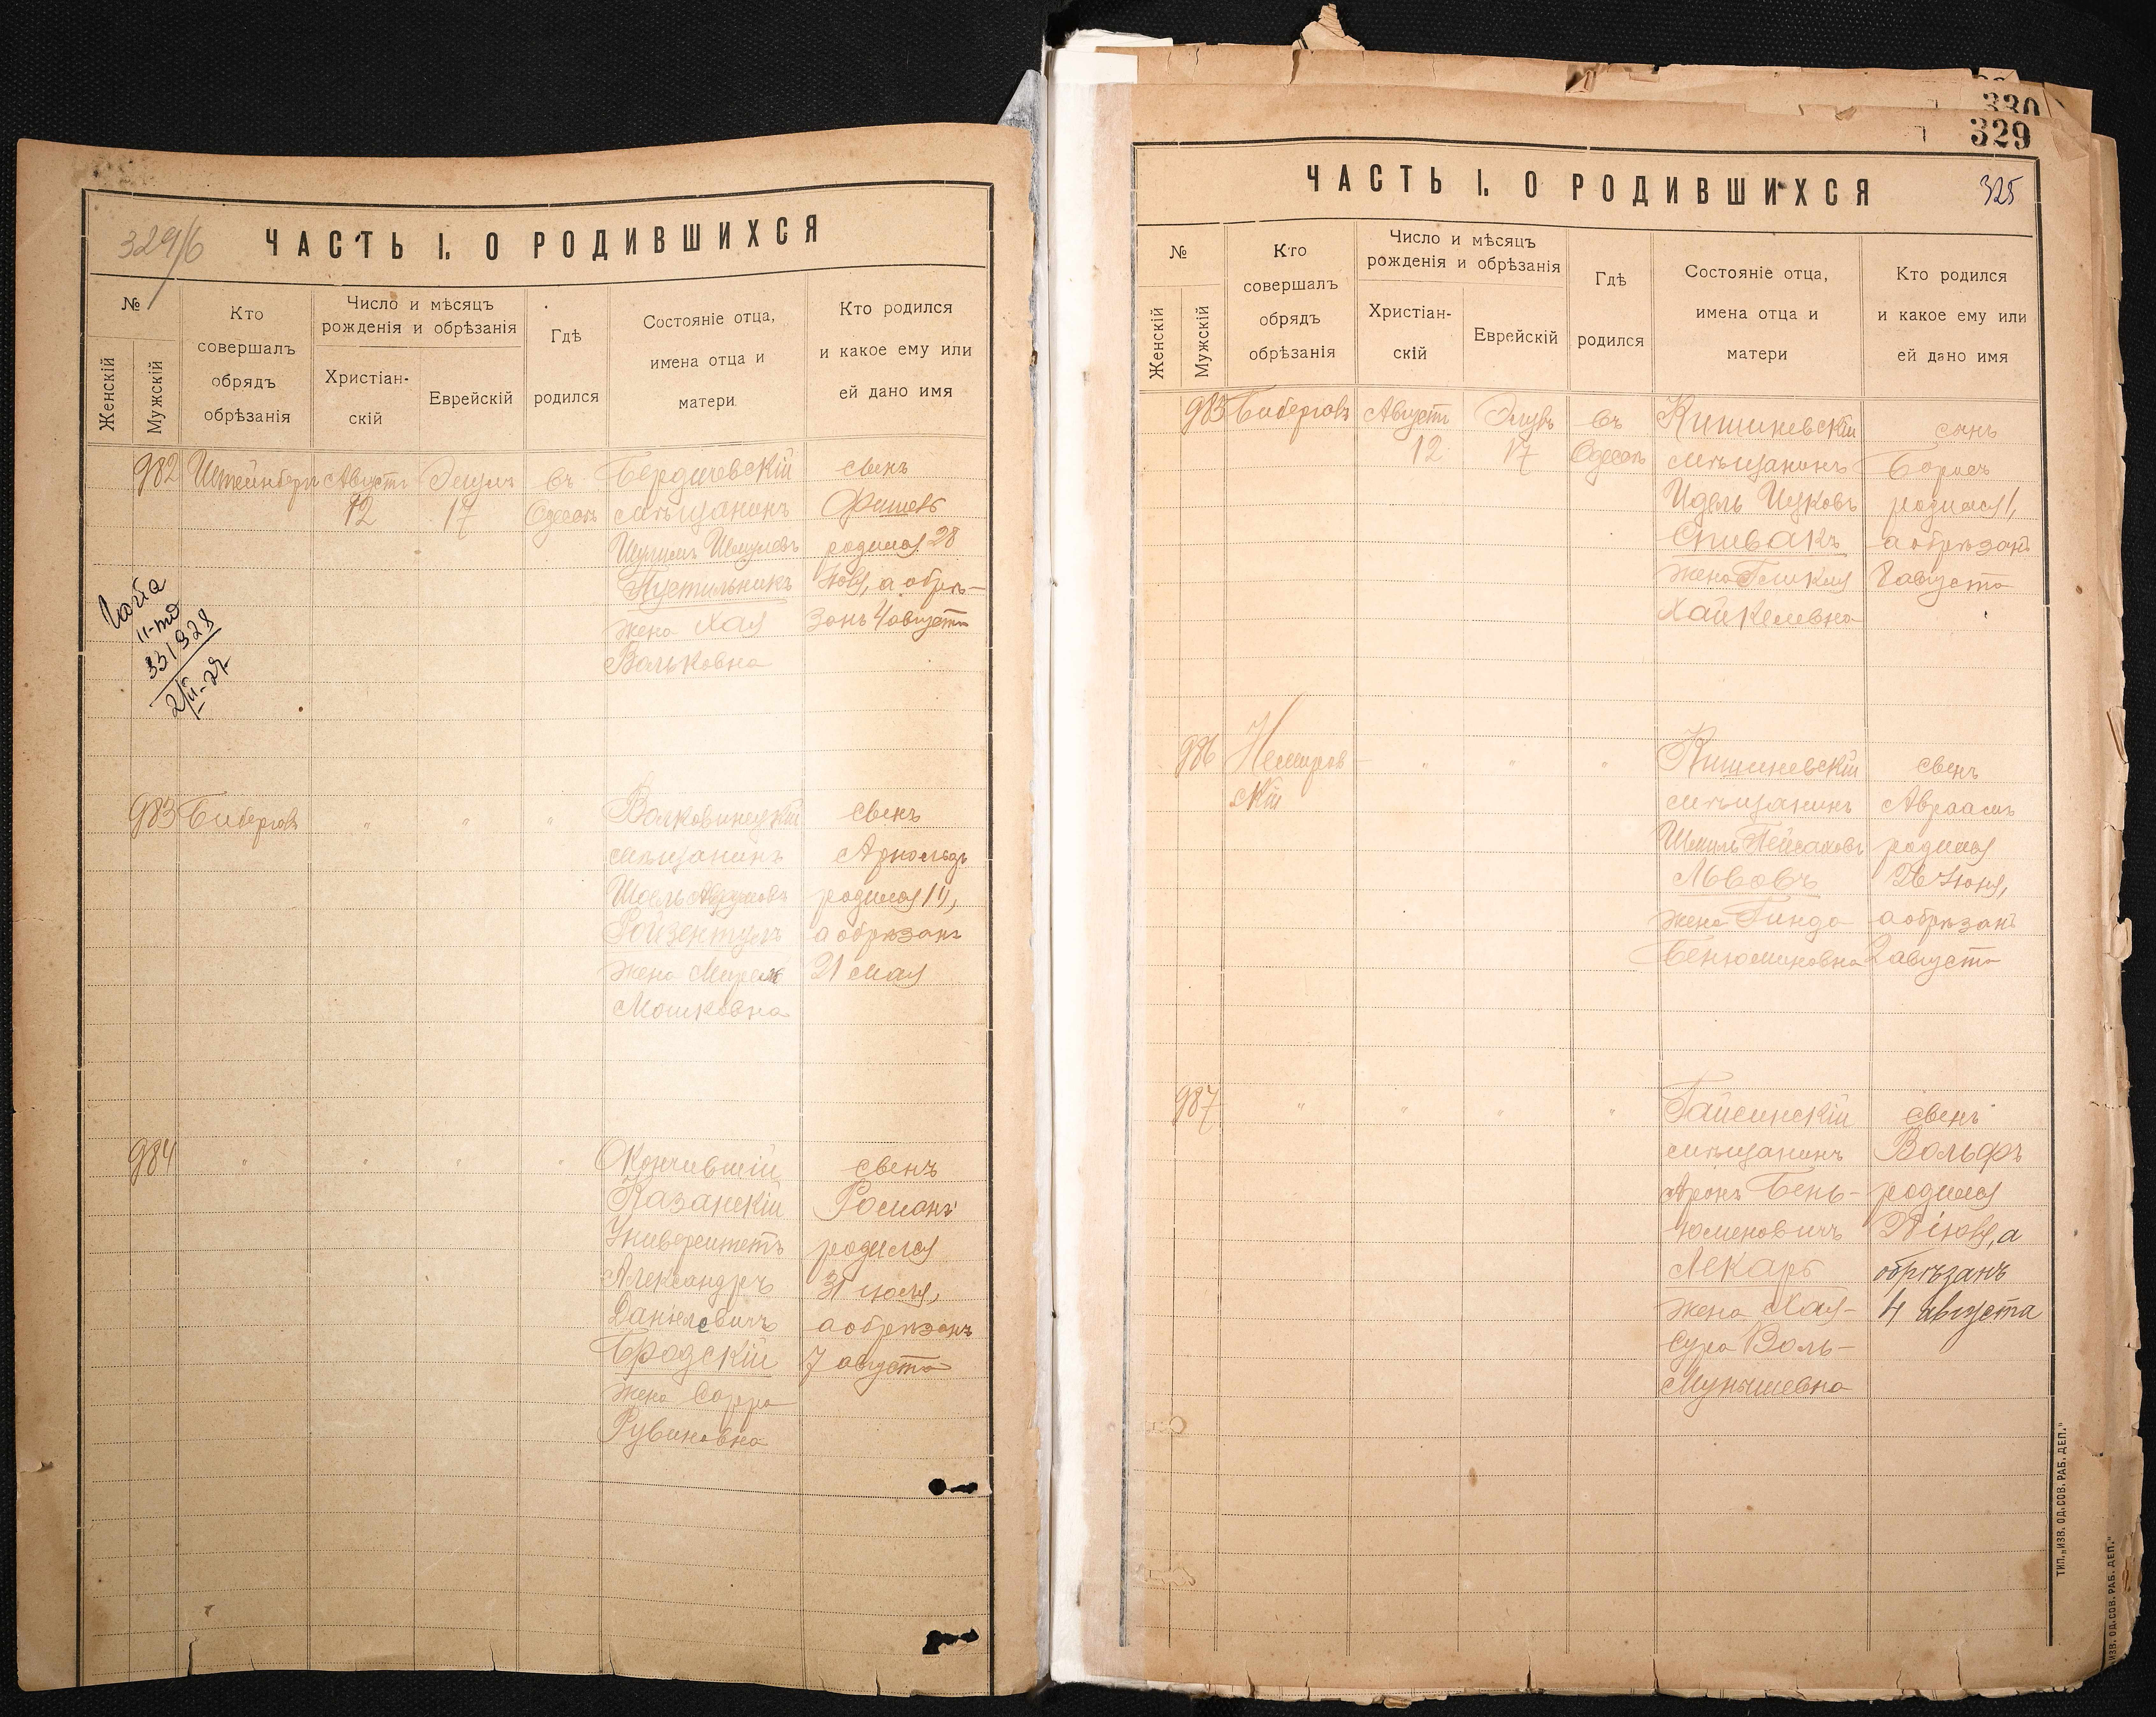 329/б
ЧАСТЬ I. О РОДИВШИХСЯ
№
Женскій
Мужскій
Кто
совершалъ
обрядъ
обрѣзанія
Число и мѣсяцъ
рожденія и обрѣзанія
Христіан-
скій
Еврейскій
Гдѣ
родился
Состояніе отца,
имена отца и
матери
Кто родился
и какое ему или
ей дано имя
982
Штейнберг
Августъ
12
Элулъ
17
въ
Одессѣ
Бердичевскій
мѣщанинъ
Шмулевъ
Пустильникъ
жена Хая
Вольковна
сынъ
Фишель
родился 28
Іюля, а обрѣ-
занъ 4 августа
33/928
983
Биберговъ
" " "
мѣщанинъ
Ройзентулъ
жена
Мошковна
сынъ
Арнольдъ
родился 14,
а обрѣзанъ
21 мая
984
" " " "
Окончившій
Казанскій
Университетъ
Александръ
Даніеловичъ
Бродскій
жена Сарра
Рувиновна
сынъ
Романъ
родился
31 июля,
а обрѣзанъ
7 августа
330
329
ЧАСТЬ I. О РОДИВШИХСЯ
325
№
Женскій
Мужскій
Кто
совершалъ
обрядъ
обрѣзанія
Число и мѣсяцъ
рожденія и обрѣзанія
Христіан-
скій
Еврейскій
Гдѣ
родился
Состояніе отца,
имена отца и
матери
Кто родился
и какое ему или
ей дано имя
985
Биберговъ
Августъ
12
Элулъ
17
въ
Одессѣ
Кишиневскій
мѣщанинъ
Идель Ицковъ
Спивакъ
жена Гликля
Хайкелевна
сынъ
Борисъ
родился 1,
а обрѣзанъ
8 августа
986
Немиров-
скій
" " "
Кишиневскій
мѣщанинъ
Шмиль Пейсаховъ
Львовъ
жена Гинда
Беньюминовна
сынъ
Авраамъ
родился
26 Іюня,
а обрѣзанъ
2 августа
987
" " " "
Гайсинскій
мѣщанинъ
Аронъ Бень-
юменовичъ
Лекарь
жена Хая-
Сура Воль-
Мунышевна
сынъ
Вольфъ
родился
іюля, а
обрѣзанъ
4 августа
ТИП. „ИЗВ. ОД. СОВ. РАБ. ДЕП."
ИЗВ. ОД. СОВ. РАБ. ДЕП."